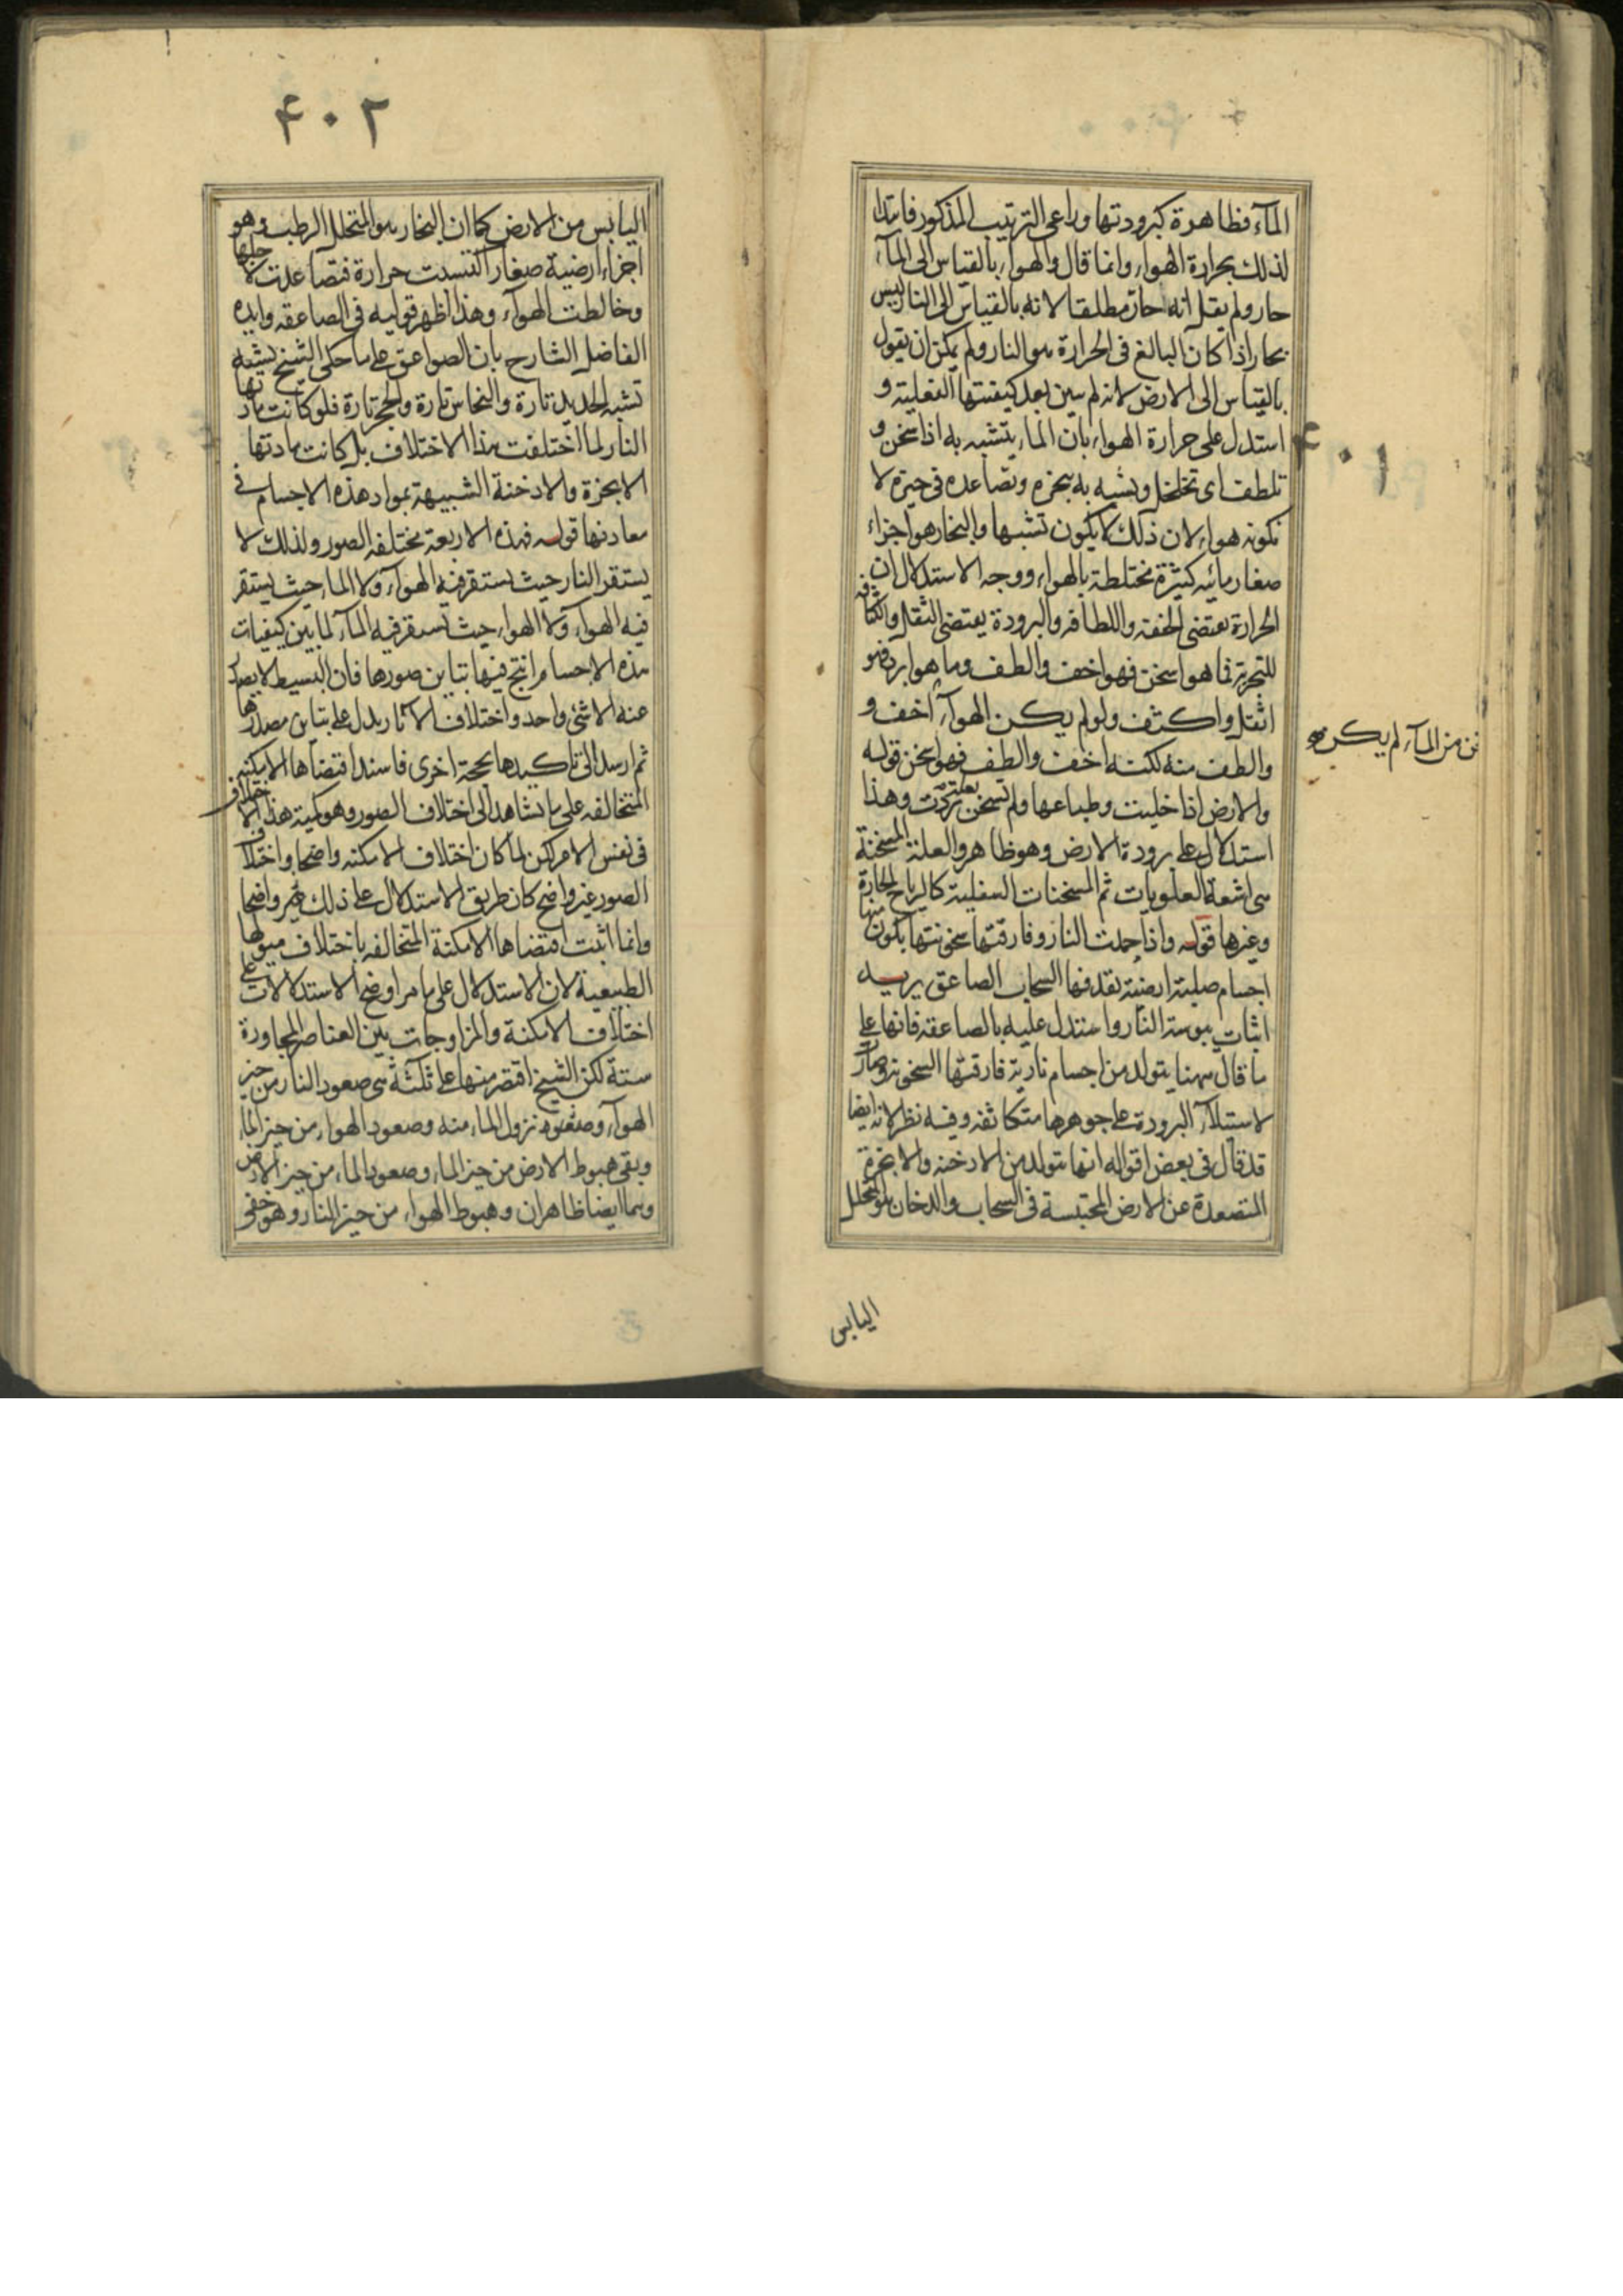 المآء فظاهرة كبرودتها وراعى الترتيب المذكور فابتدا
لذلك بحرارة الهواء وانما قال والهواء بالقياس الى المآء
حار ولم يقل انه حار مطلقا لانه بالقياس الى النار ليس
بحار اذا كان البالغ فى الحرارة هو النار ولم يمكن ان يقول
بالقياس الى الارض لانه لم يبين بعد كيفيتها الفعلية و
استدل على حرارة الهواء بان الماء يتشبه به اذا سخن و
تلطف اى تخلخل وتشبه به تبخره وتصاعده فى حيزه لا
تكونه هواء لان ذلك لا يكون تشبها والبخار هو اجزاء
صغار مائيه كثيرة مختلطة بالهواء ووجه الاستدلال ان
الحرارة يقتضى الخفة واللطافه والبرودة يقتضى الثقل والكثافه
للتجربة فما هو اسخن فهو اخف والطف وما هو ابرد فهو
اثقل واكثف ولو لم يكن الهوآء اخف و
والطف منه لكنه اخف والطف فهو اسخن قوله
والارض اذا خليت وطباعها ولم تسخن بعلة بردت وهذا
استدلال على برودة الارض وهو ظاهر والعلة المسخنة
هى اشعة العلويات ثم المسخنات السفلية كالرياح الحارة
وغيرها قوله واذا خمدت النار وفارقتها سخونتها يكون منها
اجسام صلبة ارضية تقذفها السحاب الصاعق يريد
اثبات يبوسة النار واستدل عليه بالصاعقه فانها على
ما قال ههنا يتولد من اجسام نارية فارقتها السخونة وصارت
لاستيلآء البرودة على جوهرها متكاثفة وفيه نظر لانه ايضا
قد قال فى بعض اقواله انها يتولد من الادخنه والابخرة
المتصعدة عن الارض المحتبسة فى السحاب والدخان هو المتحلل
اليابس
٤٠١
من المآء لم يكن
٤٠٢
اليابس من الارض كما ان البخار هو المتحلل الرطب وهو
اجزاء ارضية صغار اكتسبت حرارة فتصاعدت لاجلها
وخالطت الهوآء وهذا اظهر قوليه فى الصاعقه وايده
الفاضل الشارح بان الصواعق على ما حكى الشيخ يشبه
تشبه الحديد تارة والنحاس تارة والحجر تارة فلو كانت مادتها
النار لما اختلفت هذا الاختلاف بل كانت مادتها
الابخرة والادخنة الشبيهة بمواد هذه الاجسام فى
معادنها قوله فهذه الاربعة مختلفه الصور ولذلك لا
يستقر النار حيث يستقر فيه الهوآء ولا الماء حيث يستقر
فيه الهوآء ولا الهواء حيث يستقر فيه المآء لما بين كيفيات
هذه الاجسام انتج فيها تباين صورها فان البسيط لا يصدر
عنه الا شئ واحد واختلاف الآثار يدل على تباين مصدرها
ثم ارسل الى تاكيدها بحجة اخرى فاسند اقتضآها الامكنة
المتخالفه على ما تشاهد الى اختلاف الصور وهو كمية هذا الاختلاف
فى نفس الامر لكن لما كان اختلاف الامكنه واضحا واختلاف
الصور غير واضح كان طريق الاستدلال على ذلك غير واضحا
وانما اثبت اقتضاها الامكنة المتخالفه باختلاف ميولها
الطبيعية لان الاستدلال على ما مر اوضح الاستدلالات على
اختلاف الامكنة والمزاوجات بين العناصر المجاورة
ستة لكن الشيخ اقتصر منها على ثلثة هى صعود النار من حيز
الهوآء نزول الماء منه وصعود الهواء من حيز الماء
وبقى هبوط الارض من حيز الماء وصعود الماء من حيز الارض
وهما ايضا ظاهران وهبوط الهواء من حيز النار وهو خفى